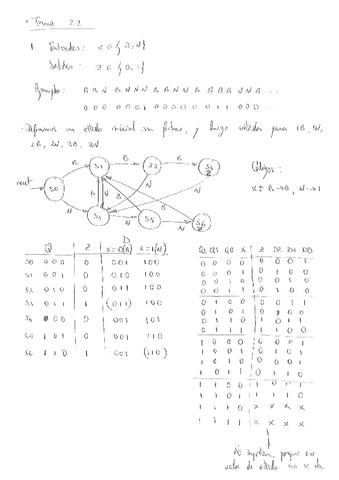 Tema 2.2
1. Entradas: x ∈ {B, N}
Salidas: z ∈ {0, 1}
Ejemplo: B B N B N N B B N N B B B N N B
0 0 0 0 0 1 0 0 0 0 0 0 1 1 0 0 0
Definimos un estado inicial sin fichas, y luego estados para 1B, 1N,
2B, 2N, 3B, 3N.
reset S0 S1 S2 S3
B B B N N
S4 S5 S6
Códigos:
X: B→0, N→1
Q Z D
X=0(B) X=1(N)
S0 000 0 001 100
S1 001 0 010 100
S2 010 0 011 100
S3 011 1 (011) 100
S4 100 0 001 101
S5 101 0 001 110
S6 110 1 001 (110)
Q2 Q1 Q0 X Z D2 D1 D0
0 0 0 0 0 0 0 1
0 0 0 1 0 1 0 0
0 0 1 0 0 0 1 0
0 0 1 1 0 1 0 0
0 1 0 0 0 0 1 1
0 1 0 1 0 1 0 0
0 1 1 0 1 0 1 1
0 1 1 1 1 1 0 0
1 0 0 0 0 0 0 1
1 0 0 1 0 1 0 1
1 0 1 0 0 0 0 1
1 0 1 1 0 1 1 0
1 1 0 0 1 0 0 1
1 1 0 1 1 1 1 0
1 1 1 0 X X X X
1 1 1 1 X X X X
No importan, porque ese
valor de estado no se da.